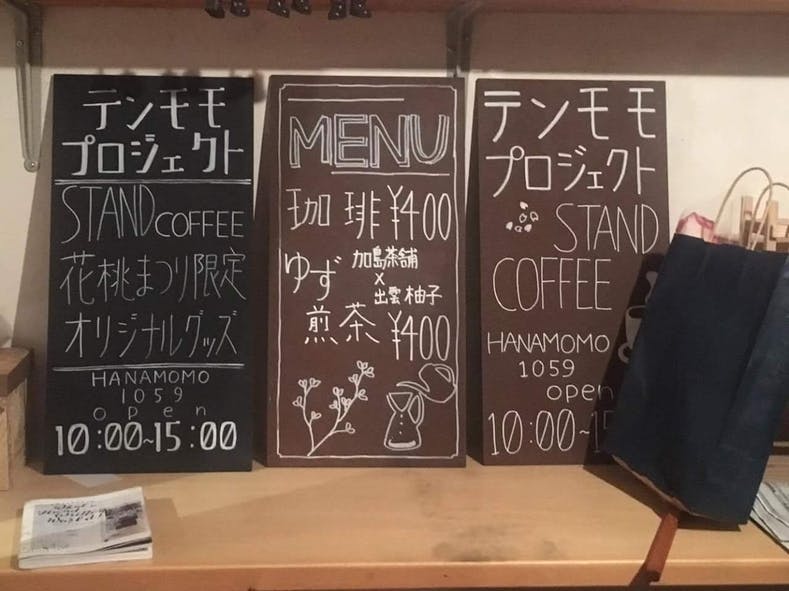 テンモモ
プロジェクト
STAND COFFEE
花桃まつり限定
オリジナルグッズ
HANAMOMO
1059
open
10:00~15:00
MENU
珈琲 ¥400
ゆず
煎茶 ¥400
加島茶舗
×
出雲柚子
テンモモ
プロジェクト
STAND
COFFEE
HANAMOMO
1059
open
10:00~1